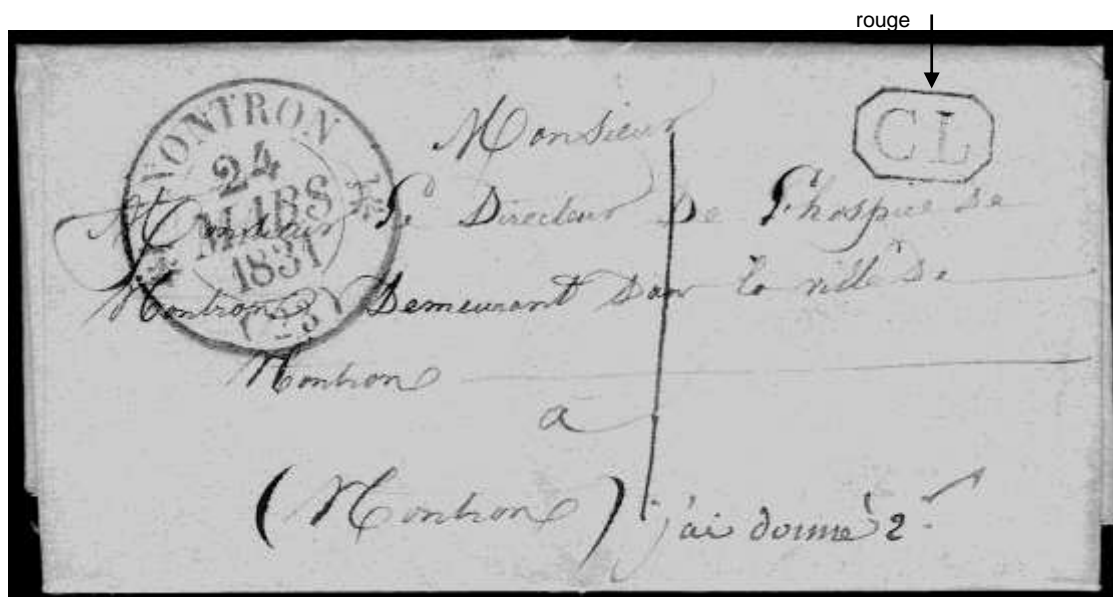 rouge
CL
NONTRON
24
MARS
1831
(23)
Monsieur
Monsieur Le Directeur De L'hospice De
Nontron Demeurant Dans la ville De
Nontron
a
(Nontron) j'ai donné 2